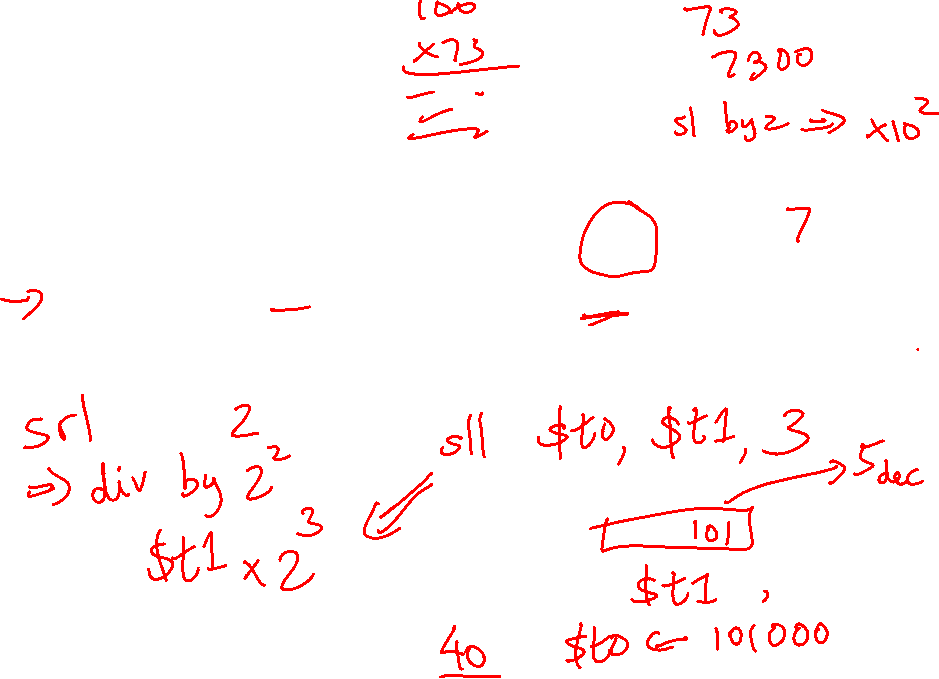 100
×73
73
7300
sl by 2 ⇒ ×10²
7
→
srl 2
⇒ div by 2²
sll $t0, $t1, 3
$t1 × 2³
101 → 5dec
$t1 ,
40
$t0 ← 101000